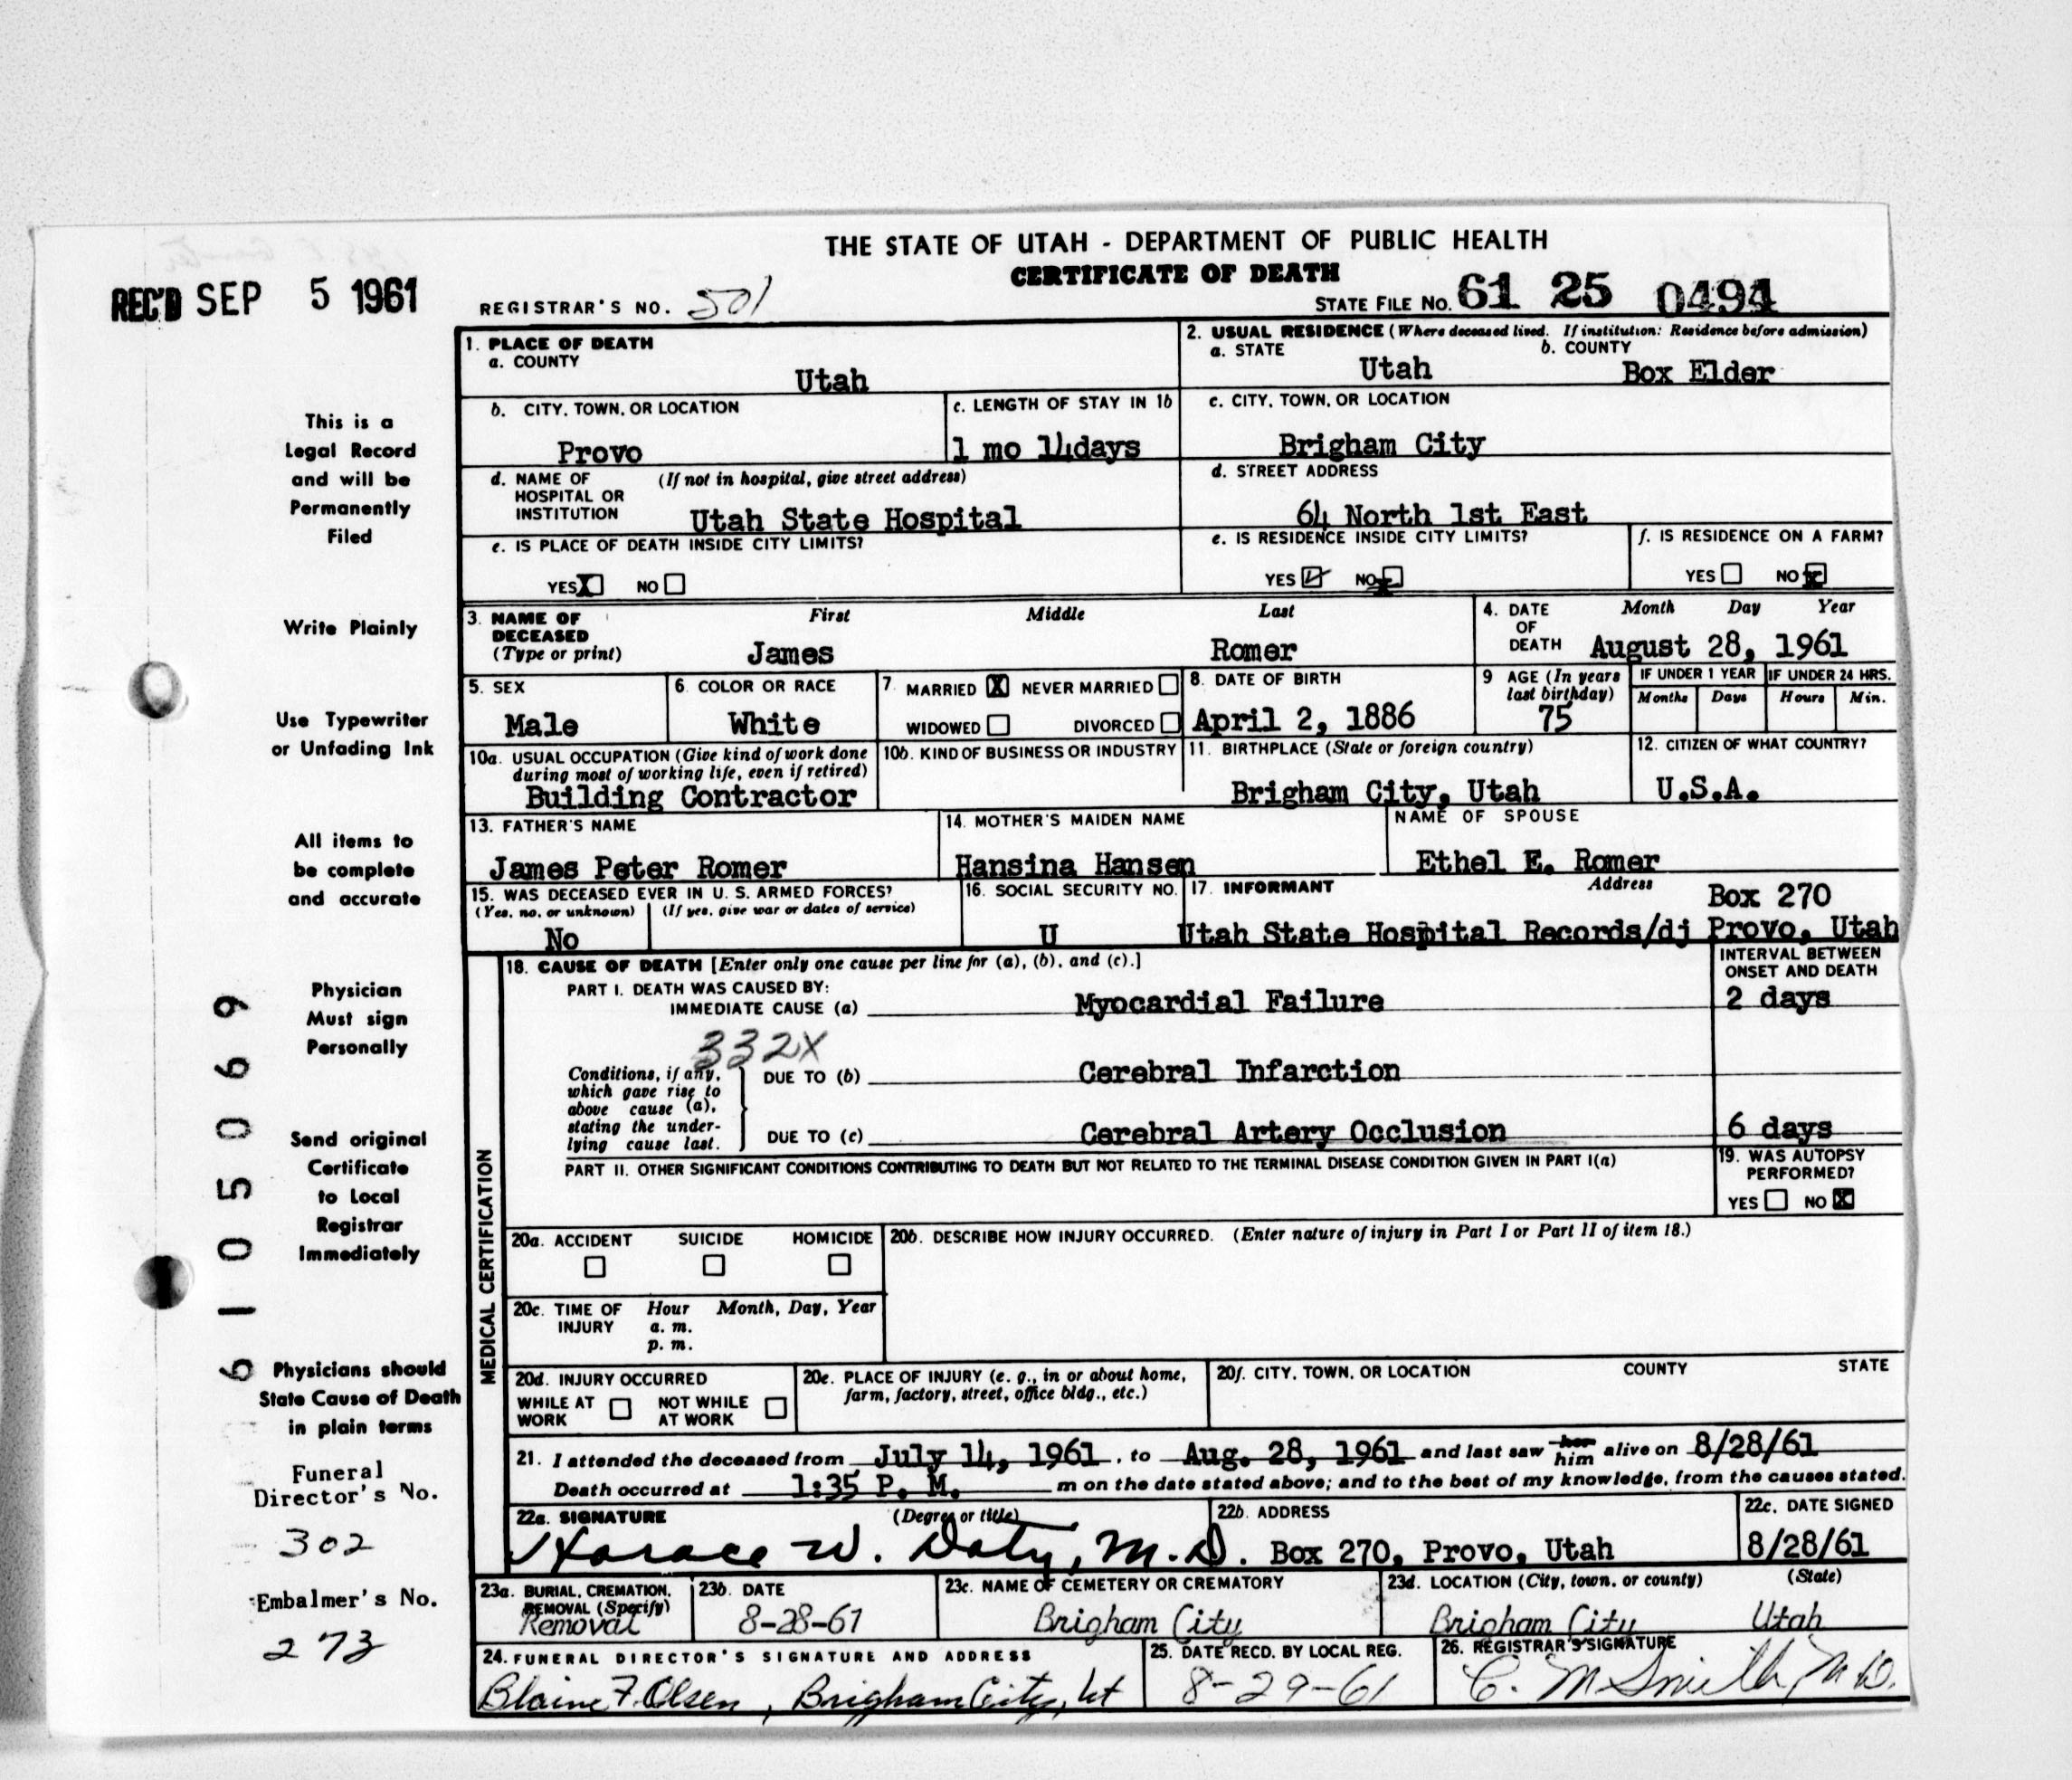 THE STATE OF UTAH - DEPARTMENT OF PUBLIC HEALTH
CERTIFICATE OF DEATH
REC'D SEP 5 1961
REGISTRAR'S NO. 501
STATE FILE NO. 61 25 0494
1. PLACE OF DEATH
a. COUNTY
Utah
2. USUAL RESIDENCE (Where deceased lived. If institution: Residence before admission)
a. STATE
Utah
b. COUNTY
Box Elder
b. CITY, TOWN, OR LOCATION
Provo
c. LENGTH OF STAY IN 1b
1 mo 14days
c. CITY, TOWN, OR LOCATION
Brigham City
d. NAME OF HOSPITAL OR INSTITUTION
(If not in hospital, give street address)
Utah State Hospital
d. STREET ADDRESS
64 North 1st East
e. IS PLACE OF DEATH INSIDE CITY LIMITS?
YES X NO
e. IS RESIDENCE INSIDE CITY LIMITS?
YES NO
f. IS RESIDENCE ON A FARM?
YES NO X
3. NAME OF DECEASED
(Type or print)
First Middle Last
James Romer
4. DATE OF DEATH
Month Day Year
August 28, 1961
5. SEX
Male
6. COLOR OR RACE
White
7. MARRIED X NEVER MARRIED
WIDOWED DIVORCED
8. DATE OF BIRTH
April 2, 1886
9 AGE (In years last birthday)
75
IF UNDER 1 YEAR
Months Days
IF UNDER 24 HRS.
Hours Min.
10a. USUAL OCCUPATION (Give kind of work done during most of working life, even if retired)
Building Contractor
10b. KIND OF BUSINESS OR INDUSTRY
11. BIRTHPLACE (State or foreign country)
Brigham City, Utah
12. CITIZEN OF WHAT COUNTRY?
U.S.A.
13. FATHER'S NAME
James Peter Romer
14. MOTHER'S MAIDEN NAME
Hansina Hansen
NAME OF SPOUSE
Ethel E. Romer
15. WAS DECEASED EVER IN U. S. ARMED FORCES?
(Yes, no, or unknown) (If yes, give war or dates of service)
No
16. SOCIAL SECURITY NO.
U
17. INFORMANT Address
Box 270
Utah State Hospital Records/dj Provo, Utah
MEDICAL CERTIFICATION
18. CAUSE OF DEATH [Enter only one cause per line for (a), (b), and (c).]
INTERVAL BETWEEN ONSET AND DEATH
PART I. DEATH WAS CAUSED BY:
IMMEDIATE CAUSE (a) Myocardial Failure
2 days
332X
Conditions, if any, which gave rise to above cause (a), stating the underlying cause last.
DUE TO (b) Cerebral Infarction
DUE TO (c) Cerebral Artery Occlusion
6 days
PART II. OTHER SIGNIFICANT CONDITIONS CONTRIBUTING TO DEATH BUT NOT RELATED TO THE TERMINAL DISEASE CONDITION GIVEN IN PART I(a)
19. WAS AUTOPSY PERFORMED?
YES NO X
20a. ACCIDENT SUICIDE HOMICIDE
20b. DESCRIBE HOW INJURY OCCURRED. (Enter nature of injury in Part I or Part II of item 18.)
20c. TIME OF INJURY
Hour Month, Day, Year
a. m.
p. m.
20d. INJURY OCCURRED
WHILE AT WORK NOT WHILE AT WORK
20e. PLACE OF INJURY (e. g., in or about home, farm, factory, street, office bldg., etc.)
20f. CITY, TOWN, OR LOCATION COUNTY STATE
21. I attended the deceased from July 14, 1961, to Aug. 28, 1961 and last saw her him alive on 8/28/61
Death occurred at 1:35 P. M. m on the date stated above; and to the best of my knowledge, from the causes stated.
22a. SIGNATURE (Degree or title)
Horace W. Doty, M.D.
22b. ADDRESS
Box 270, Provo, Utah
22c. DATE SIGNED
8/28/61
23a. BURIAL, CREMATION, REMOVAL (Specify)
Removal
23b. DATE
8-28-61
23c. NAME OF CEMETERY OR CREMATORY
Brigham City
23d. LOCATION (City, town, or county) (State)
Brigham City Utah
24. FUNERAL DIRECTOR'S SIGNATURE AND ADDRESS
Blaine F. Olsen, Brigham City, Ut
25. DATE RECD. BY LOCAL REG.
8-29-61
26. REGISTRAR'S SIGNATURE
C. M Smith, M D.
This is a
Legal Record
and will be
Permanently
Filed
Write Plainly
Use Typewriter
or Unfading Ink
All items to
be complete
and accurate
Physician
Must sign
Personally
Send original
Certificate
to Local
Registrar
Immediately
Physicians should
State Cause of Death
in plain terms
Funeral
Director's No.
302
Embalmer's No.
273
6105069